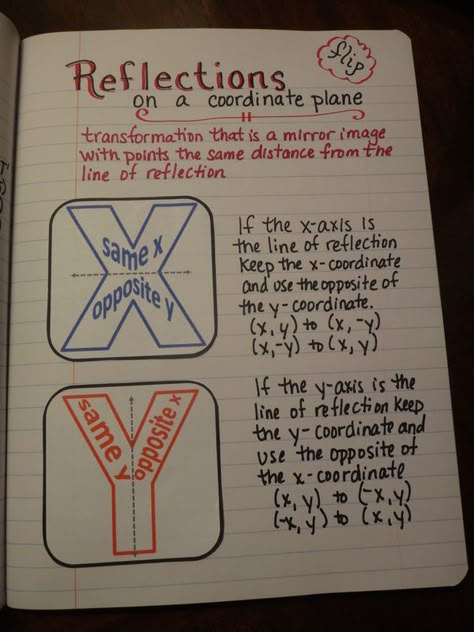 flip
Reflections
on a coordinate plane
transformation that is a mirror image
with points the same distance from the
line of reflection
same x
opposite y
If the x-axis is
the line of reflection
Keep the x-coordinate
and use the opposite of
the y-coordinate.
(x, y) to (x, -y)
(x,-y) to (x, y)
same y
opposite x
If the y-axis is the
line of reflection keep
the y-coordinate and
use the opposite of
the x-coordinate
(x, y) to (-x, y)
(-x, y) to (x, y)